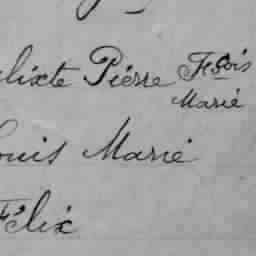 lixte Pierre Fçois
Marié
ouis Marié
Félix